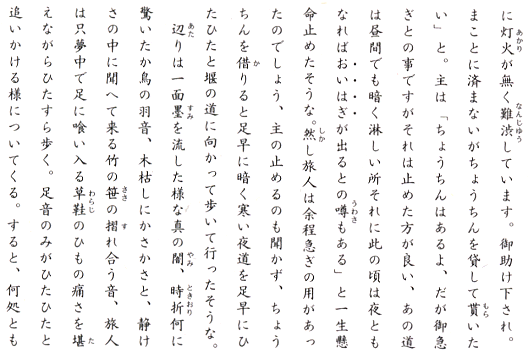 あかり なんじゅう
に灯火が無く難渋しています。御助け下され。
もら
まことに済まないがちょうちんを貸して貰いた
い」と。主は「ちょうちんはあるよ、だが御急
ぎとの事ですがそれは止めた方が良い、あの道
は昼間でも暗く淋しい所それに此の頃は夜とも
うわさ
なればおいはぎが出るとの噂もある」と一生懸
しか
命止めたそうな。然し旅人は余程急ぎの用があっ
たのでしょう、主の止めるのも聞かず、ちょう
か
ちんを借りると足早に暗く寒い夜道を足早にひ
たひたと堰の道に向かって歩いて行ったそうな。
あた すみ やみ ときおり
辺りは一面墨を流した様な真の闇、時折何に
驚いたか鳥の羽音、木枯しにかさかさと、静け
ささ す
さの中に聞へて来る竹の笹の摺れ合う音、旅人
わらじ た
は只夢中で足に喰い入る草鞋のひもの痛さを堪
えながらひたすら歩く。足音のみがひたひたと
追いかける様についてくる。すると、何処とも